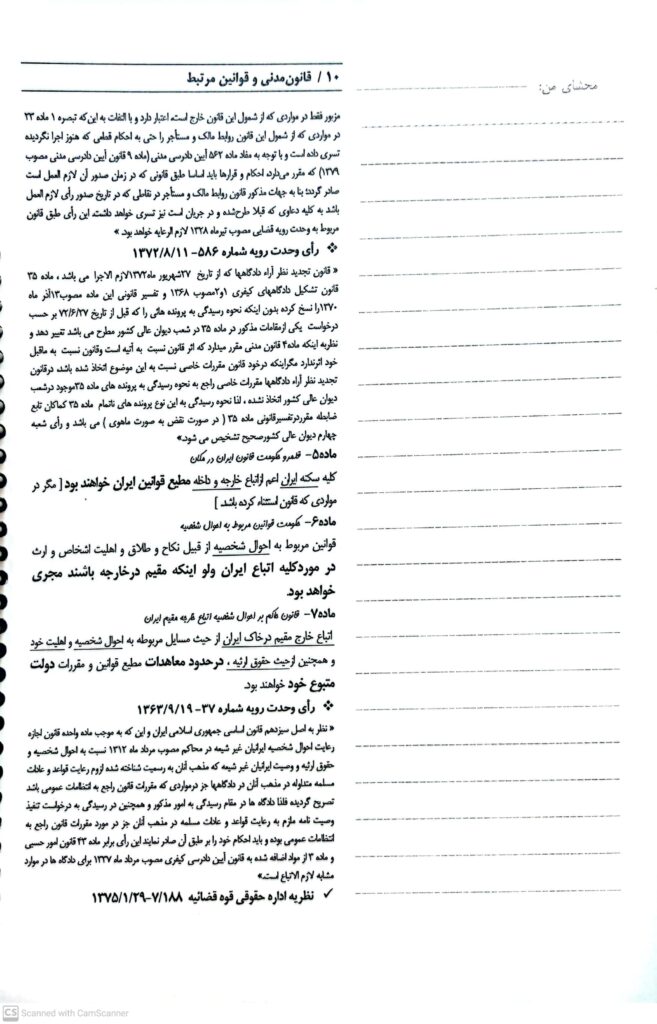 ۱۰ / قانون مدنی و قوانین مرتبط
محشای من:
مزبور فقط در مواردی که از شمول این قانون خارج است، اعتبار دارد و با التفات به این‌که تبصره ۱ ماده ۲۳
در مواردی که از شمول این قانون روابط مالک و مستأجر را حتی به احکام قطعی که هنوز اجرا نگردیده
تسری داده است و با توجه به مفاد ماده ۵۶۲ آیین دادرسی مدنی (ماده ۹ قانون آیین دادرسی مدنی مصوب
۱۳۷۹) که مقرر می‌دارد، احکام و قرارها باید اساسا طبق قانونی که در زمان صدور آن لازم العمل است
صادر گردد؛ بنا به جهات مذکور قانون روابط مالک و مستأجر در نقاطی که در تاریخ صدور رأی لازم العمل
باشد به کلیه دعاوی که قبلا طرح‌شده و در جریان است نیز تسری خواهد داشت. این رأی طبق قانون
مربوط به وحدت رویه قضایی مصوب تیرماه ۱۳۲۸ لازم الرعایه خواهد بود. »
❖ رأی وحدت رویه شماره ۵۸۶- ۱۳۷۲/۸/۱۱
« قانون تجدید نظر آراء دادگاهها که از تاریخ ۲۷شهریور ماه۱۳۷۲لازم الاجرا می باشد ، ماده ۳۵
قانون تشکیل دادگاههای کیفری ۱و۲مصوب ۱۳۶۸ و تفسیر قانونی این ماده مصوب۱۳آذر ماه
۱۳۷۰را نسخ کرده بدون اینکه نحوه رسیدگی به پرونده هائی را که قبل از تاریخ ۷۲/۶/۲۷ بر حسب
درخواست یکی ازمقامات مذکور در ماده ۳۵ در شعب دیوان عالی کشور مطرح می باشد تغییر دهد و
نظربه اینکه ماده۴ قانون مدنی مقرر میدارد که اثر قانون نسبت به آتیه است وقانون نسبت به ماقبل
خود اثرندارد مگراینکه درخود قانون مقررات خاصی نسبت به این موضوع اتخاذ شده باشد، درقانون
تجدید نظر آراء دادگاهها مقررات خاصی راجع به نحوه رسیدگی به پرونده های ماده ۳۵موجود درشعب
دیوان عالی کشور اتخاذ نشده ، لذا نحوه رسیدگی به این نوع پرونده های ناتمام ماده ۳۵ کماکان تابع
ضابطه مقرردرتفسیرقانونی ماده ۳۵ ( در صورت نقض به صورت ماهوی ) می باشد و رأی شعبه
چهارم دیوان عالی کشورصحیح تشخیص می شود.»
ماده۵- قلمرو حکومت قانون ایران در مکان
کلیه سکنه ایران اعم ازاتباع خارجه و داخله مطیع قوانین ایران خواهند بود [ مگر در
مواردی که قانون استثناء کرده باشد. ]
ماده۶- حکومت قوانین مربوط به احوال شخصیه
قوانین مربوط به احوال شخصیه از قبیل نکاح و طلاق و اهلیت اشخاص و ارث
در موردکلیه اتباع ایران ولو اینکه مقیم درخارجه باشند مجری
خواهد بود.
ماده۷- قانون حاکم بر احوال شخصیه اتباع خارجه مقیم ایران
اتباع خارج مقیم درخاک ایران از حیث مسایل مربوطه به احوال شخصیه و اهلیت خود
و همچنین ازحیث حقوق ارثیه ، درحدود معاهدات مطیع قوانین و مقررات دولت
متبوع خود خواهند بود.
❖ رأی وحدت رویه شماره ۳۷- ۱۳۶۳/۹/۱۹
« نظر به اصل سیزدهم قانون اساسی جمهوری اسلامی ایران و این که به موجب ماده واحده قانون اجازه
رعایت احوال شخصیه ایرانیان غیر شیعه در محاکم مصوب مرداد ماه ۱۳۱۲ نسبت به احوال شخصیه و
حقوق ارثیه و وصیت ایرانیان غیر شیعه که مذهب آنان به رسمیت شناخته شده لزوم رعایت قواعد و عادات
مسلمه متداوله در مذهب آنان در دادگاهها جز درمواردی که مقررات قانون راجع به انتظامات عمومی باشد
تصریح گردیده فلذا دادگاه ها در مقام رسیدگی به امور مذکور و همچنین در رسیدگی به درخواست تنفیذ
وصیت نامه ملزم به رعایت قواعد و عادات مسلمه در مذهب آنان جز در مورد مقررات قانون راجع به
انتظامات عمومی بوده و باید احکام خود را بر طبق آن صادر نمایند این رأی برابر ماده ۴۳ قانون امور حسبی
و ماده ۳ از مواد اضافه شده به قانون آیین دادرسی کیفری مصوب مرداد ماه ۱۳۳۷ برای دادگاه ها در موارد
مشابه لازم الاتباع است.»
✓ نظریه اداره حقوقی قوه قضائیه ۷/۱۸۸-۱۳۷۵/۱/۲۹
CS Scanned with CamScanner